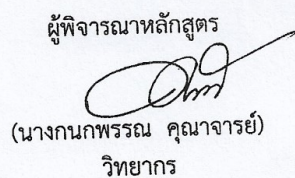 ผู้พิจารณาหลักสูตร
(นางกนกพรรณ คุณาจารย์)
วิทยากร